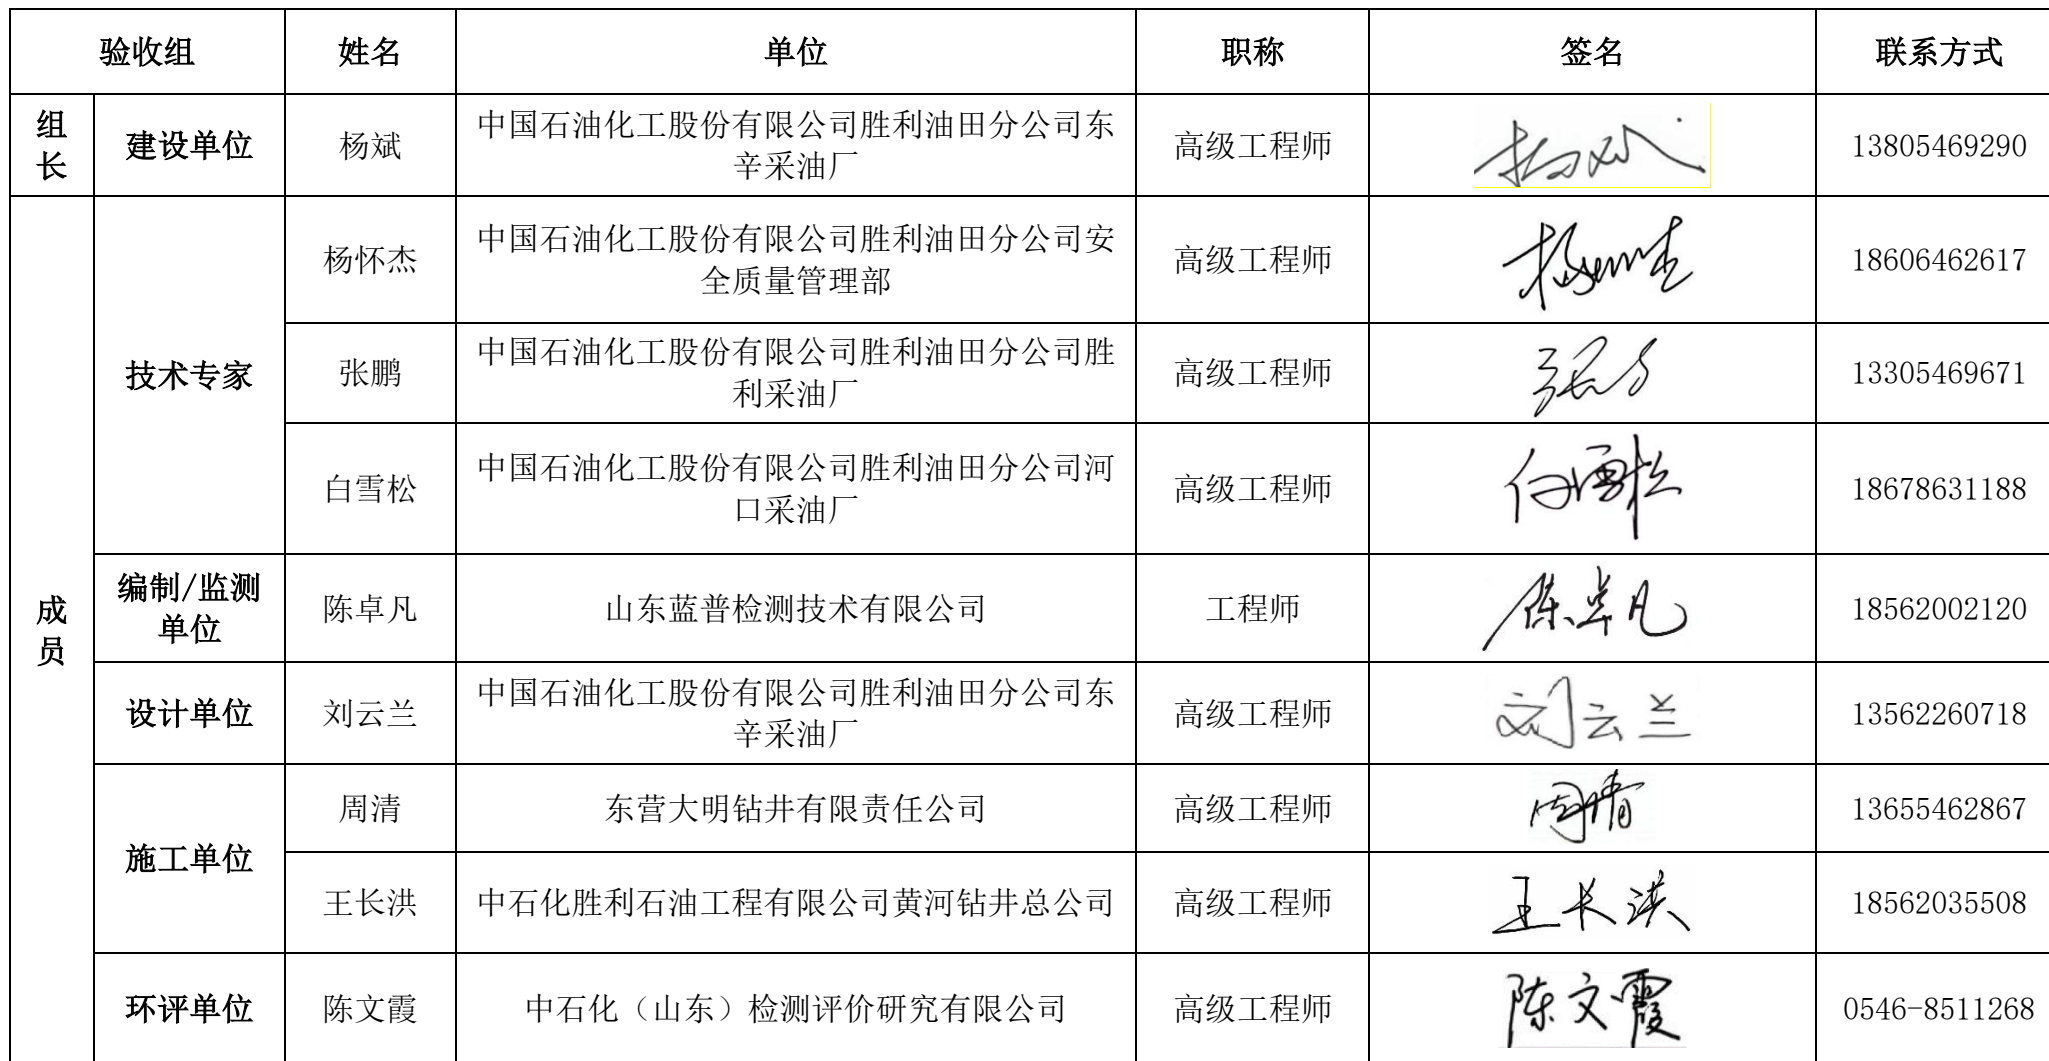 验收组 姓名 单位 职称 签名 联系方式
组长 建设单位 杨斌 中国石油化工股份有限公司胜利油田分公司东辛采油厂 高级工程师 杨斌 13805469290
成员 技术专家 杨怀杰 中国石油化工股份有限公司胜利油田分公司安全质量管理部 高级工程师 杨怀杰 18606462617
张鹏 中国石油化工股份有限公司胜利油田分公司胜利采油厂 高级工程师 张鹏 13305469671
白雪松 中国石油化工股份有限公司胜利油田分公司河口采油厂 高级工程师 白雪松 18678631188
编制/监测单位 陈卓凡 山东蓝普检测技术有限公司 工程师 陈卓凡 18562002120
设计单位 刘云兰 中国石油化工股份有限公司胜利油田分公司东辛采油厂 高级工程师 刘云兰 13562260718
施工单位 周清 东营大明钻井有限责任公司 高级工程师 周清 13655462867
王长洪 中石化胜利石油工程有限公司黄河钻井总公司 高级工程师 王长洪 18562035508
环评单位 陈文霞 中石化（山东）检测评价研究有限公司 高级工程师 陈文霞 0546-8511268